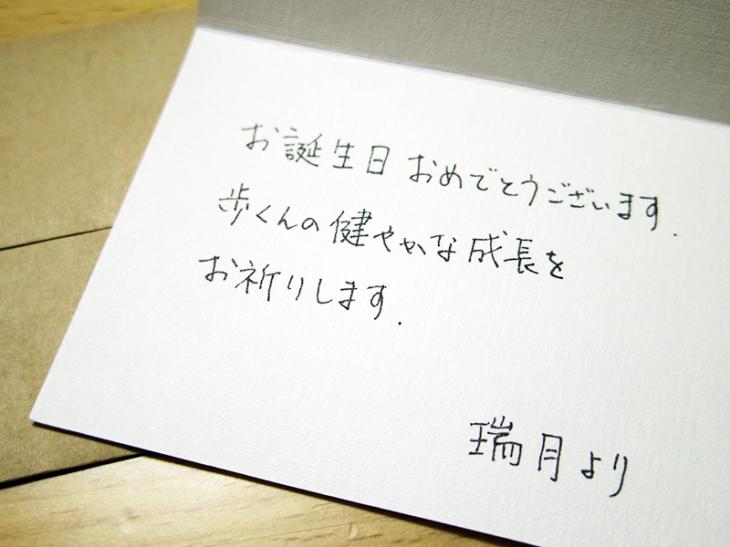 お誕生日おめでとうございます.
歩くんの健やかな成長を
お祈りします.
瑞月より